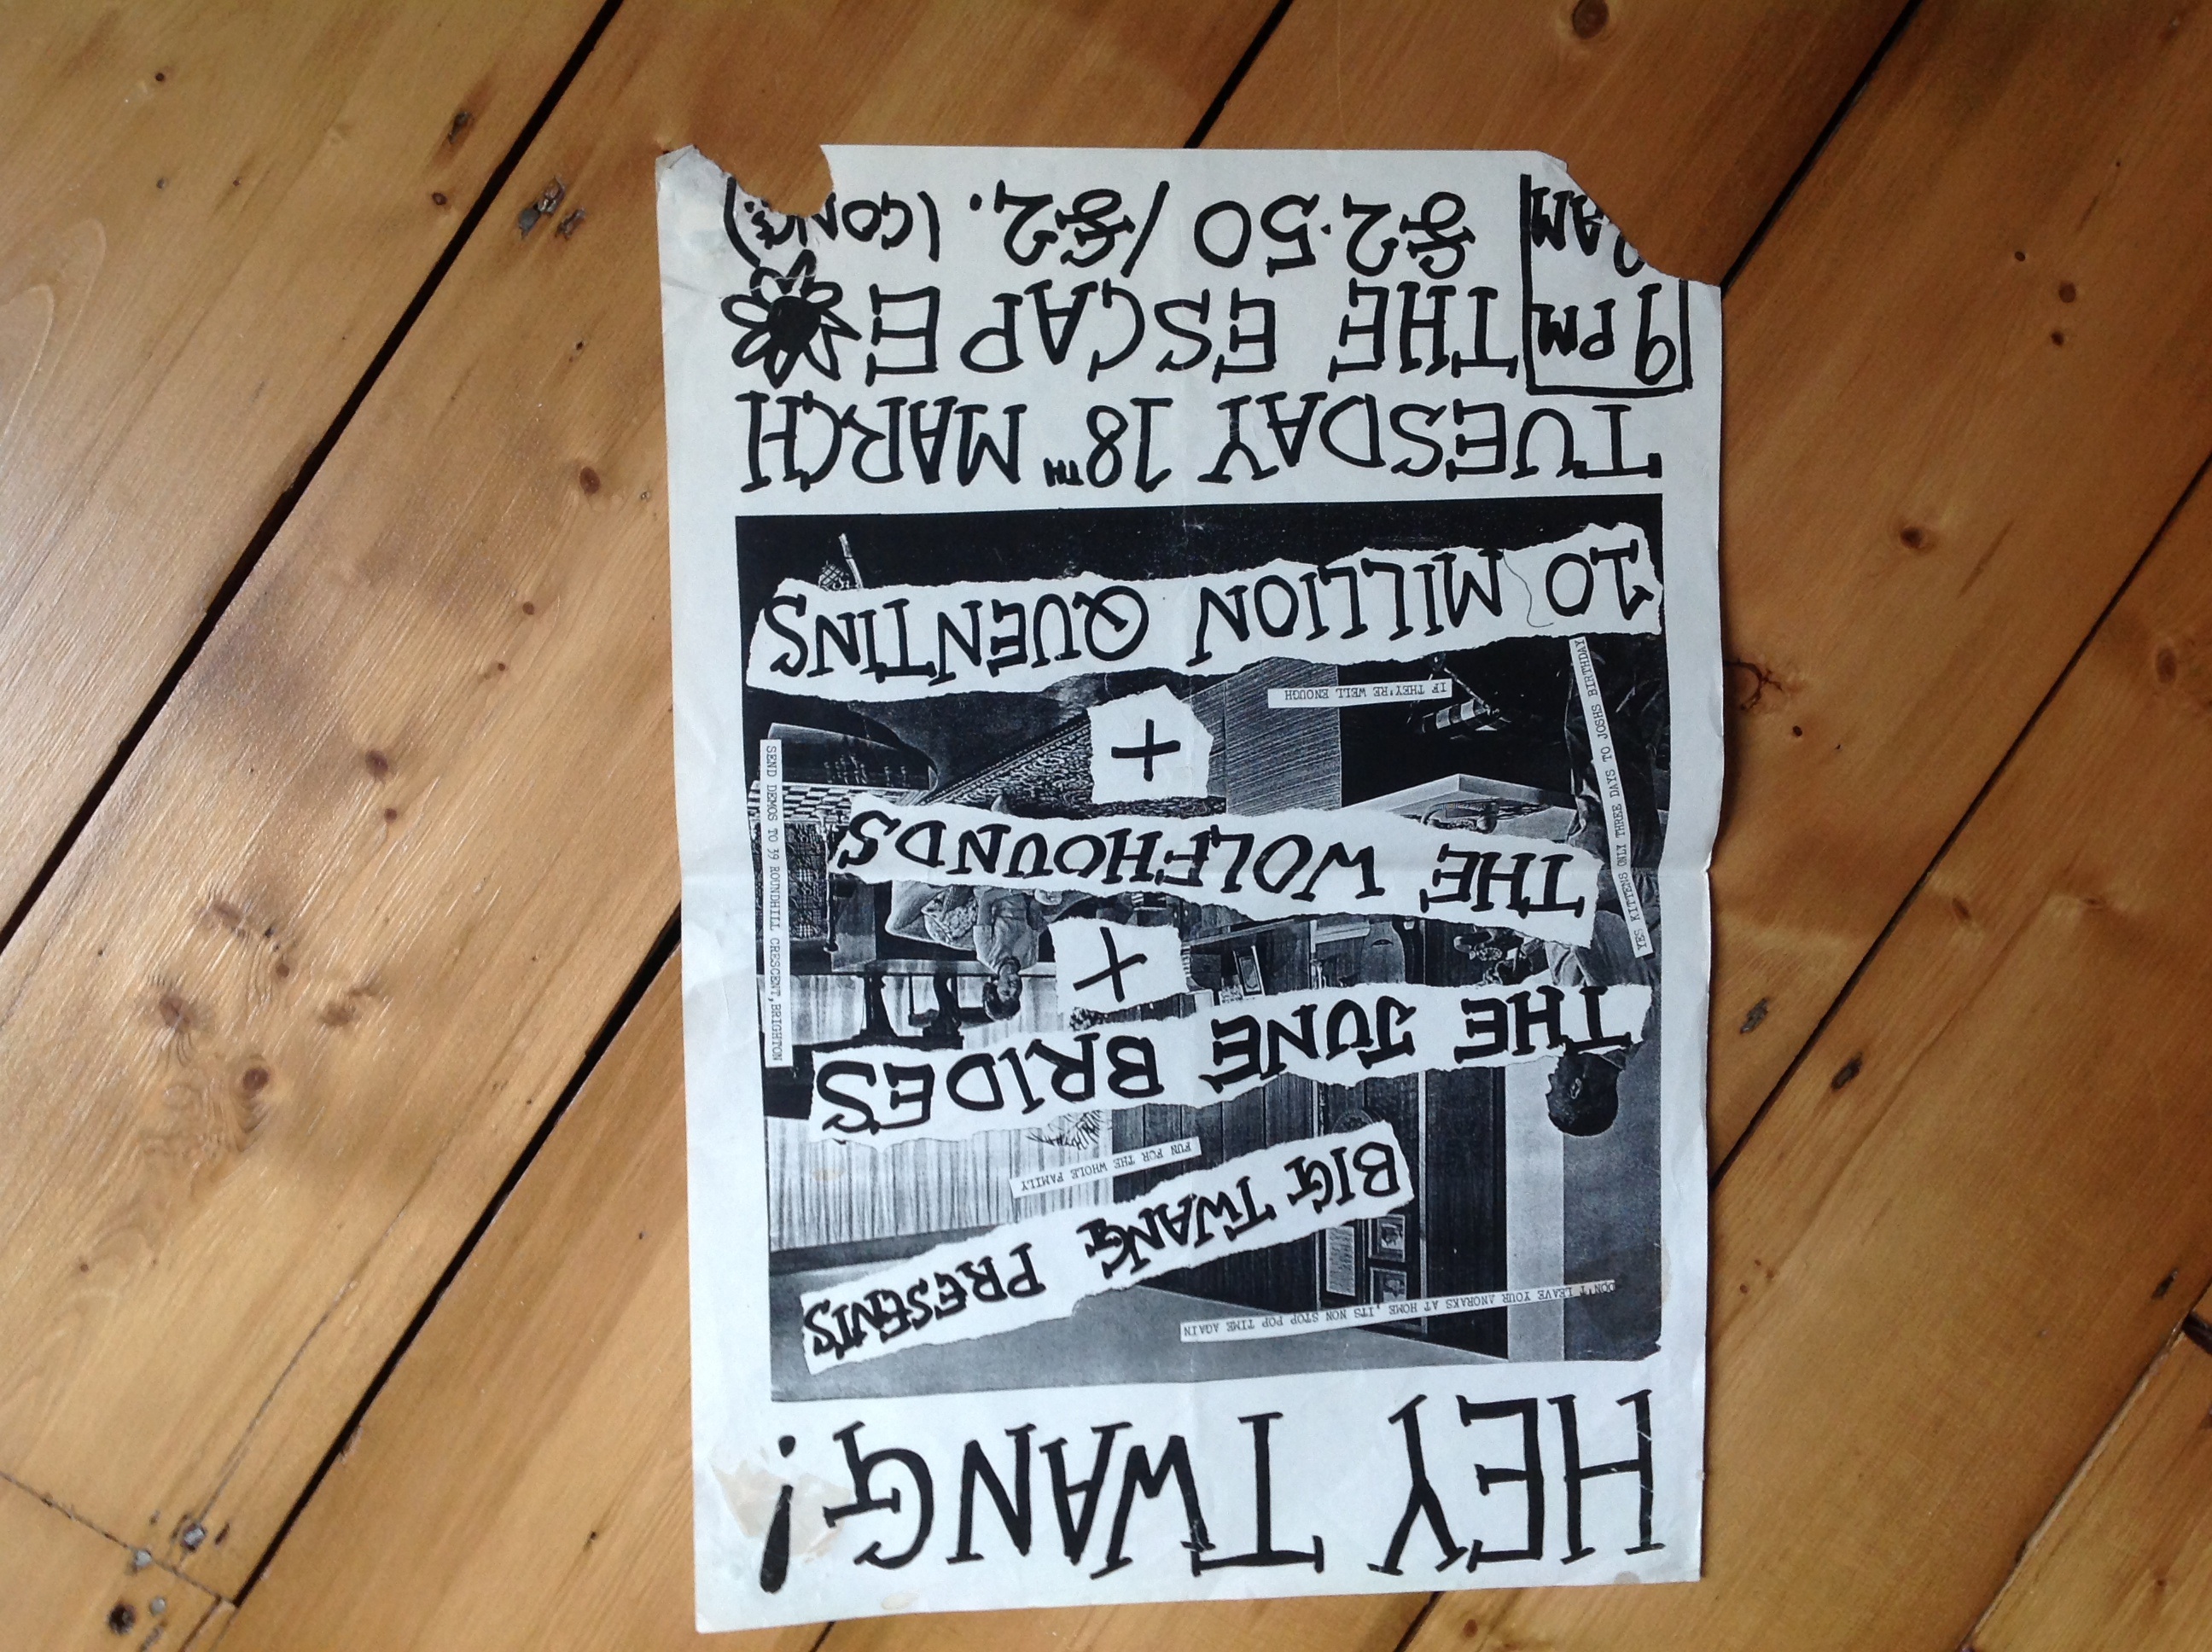 HEY TWANG!
DON'T LEAVE YOUR ANORAKS AT HOME, ITS NON STOP POP TIME AGAIN
BIG TWANG PRESENTS
FUN FOR THE WHOLE FAMILY
THE JUNE BRIDES
+
THE WOLFHOUNDS
+
YES KITTENS ONLY THREE DAYS TO JOSHS BIRTHDAY
SEND DEMOS TO 39 ROUNDHILL CRESCENT, BRIGHTON
IF THEY'RE WELL ENOUGH
10 MILLION QUENTINS
TUESDAY 18TH MARCH
9PM THE ESCAPE
AM £2.50/£2. (CONC